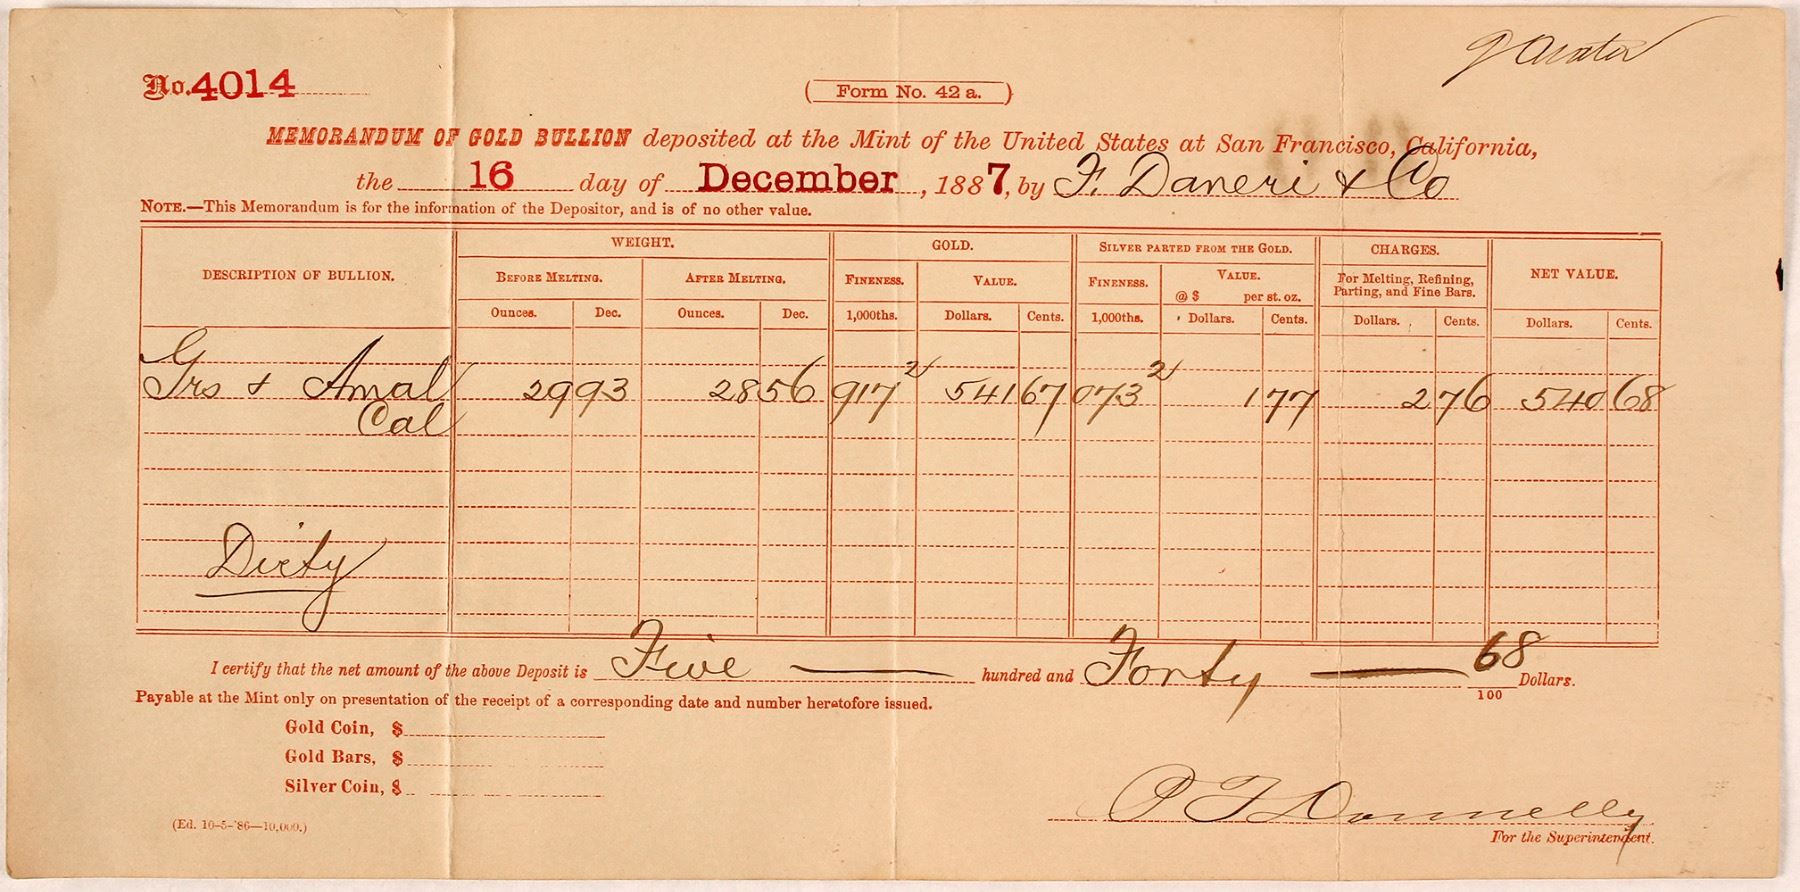 No. 4014
Form No. 42 a.
MEMORANDUM OF GOLD BULLION deposited at the Mint of the United States at San Francisco, California,
the 16 day of December, 1887, by F. Daneri & Co
NOTE.—This Memorandum is for the information of the Depositor, and is of no other value.
DESCRIPTION OF BULLION. WEIGHT. GOLD. SILVER PARTED FROM THE GOLD. CHARGES. NET VALUE.
BEFORE MELTING. AFTER MELTING. FINENESS. VALUE. FINENESS. VALUE. @ $ per st. oz. For Melting, Refining, Parting, and Fine Bars.
Ounces. Dec. Ounces. Dec. 1,000ths. Dollars. Cents. 1,000ths. Dollars. Cents. Dollars. Cents. Dollars. Cents.
Grs & Amal 29 93 28 56 917 2 541 67 073 2 1 77 2 76 540 68
Cal
Dirty
I certify that the net amount of the above Deposit is Five hundred and Forty 68/100 Dollars.
Payable at the Mint only on presentation of the receipt of a corresponding date and number heretofore issued.
Gold Coin, $
Gold Bars, $
Silver Coin, $
P F Donnelly
(Ed. 10-5-'86—10,000.)
For the Superintendent.